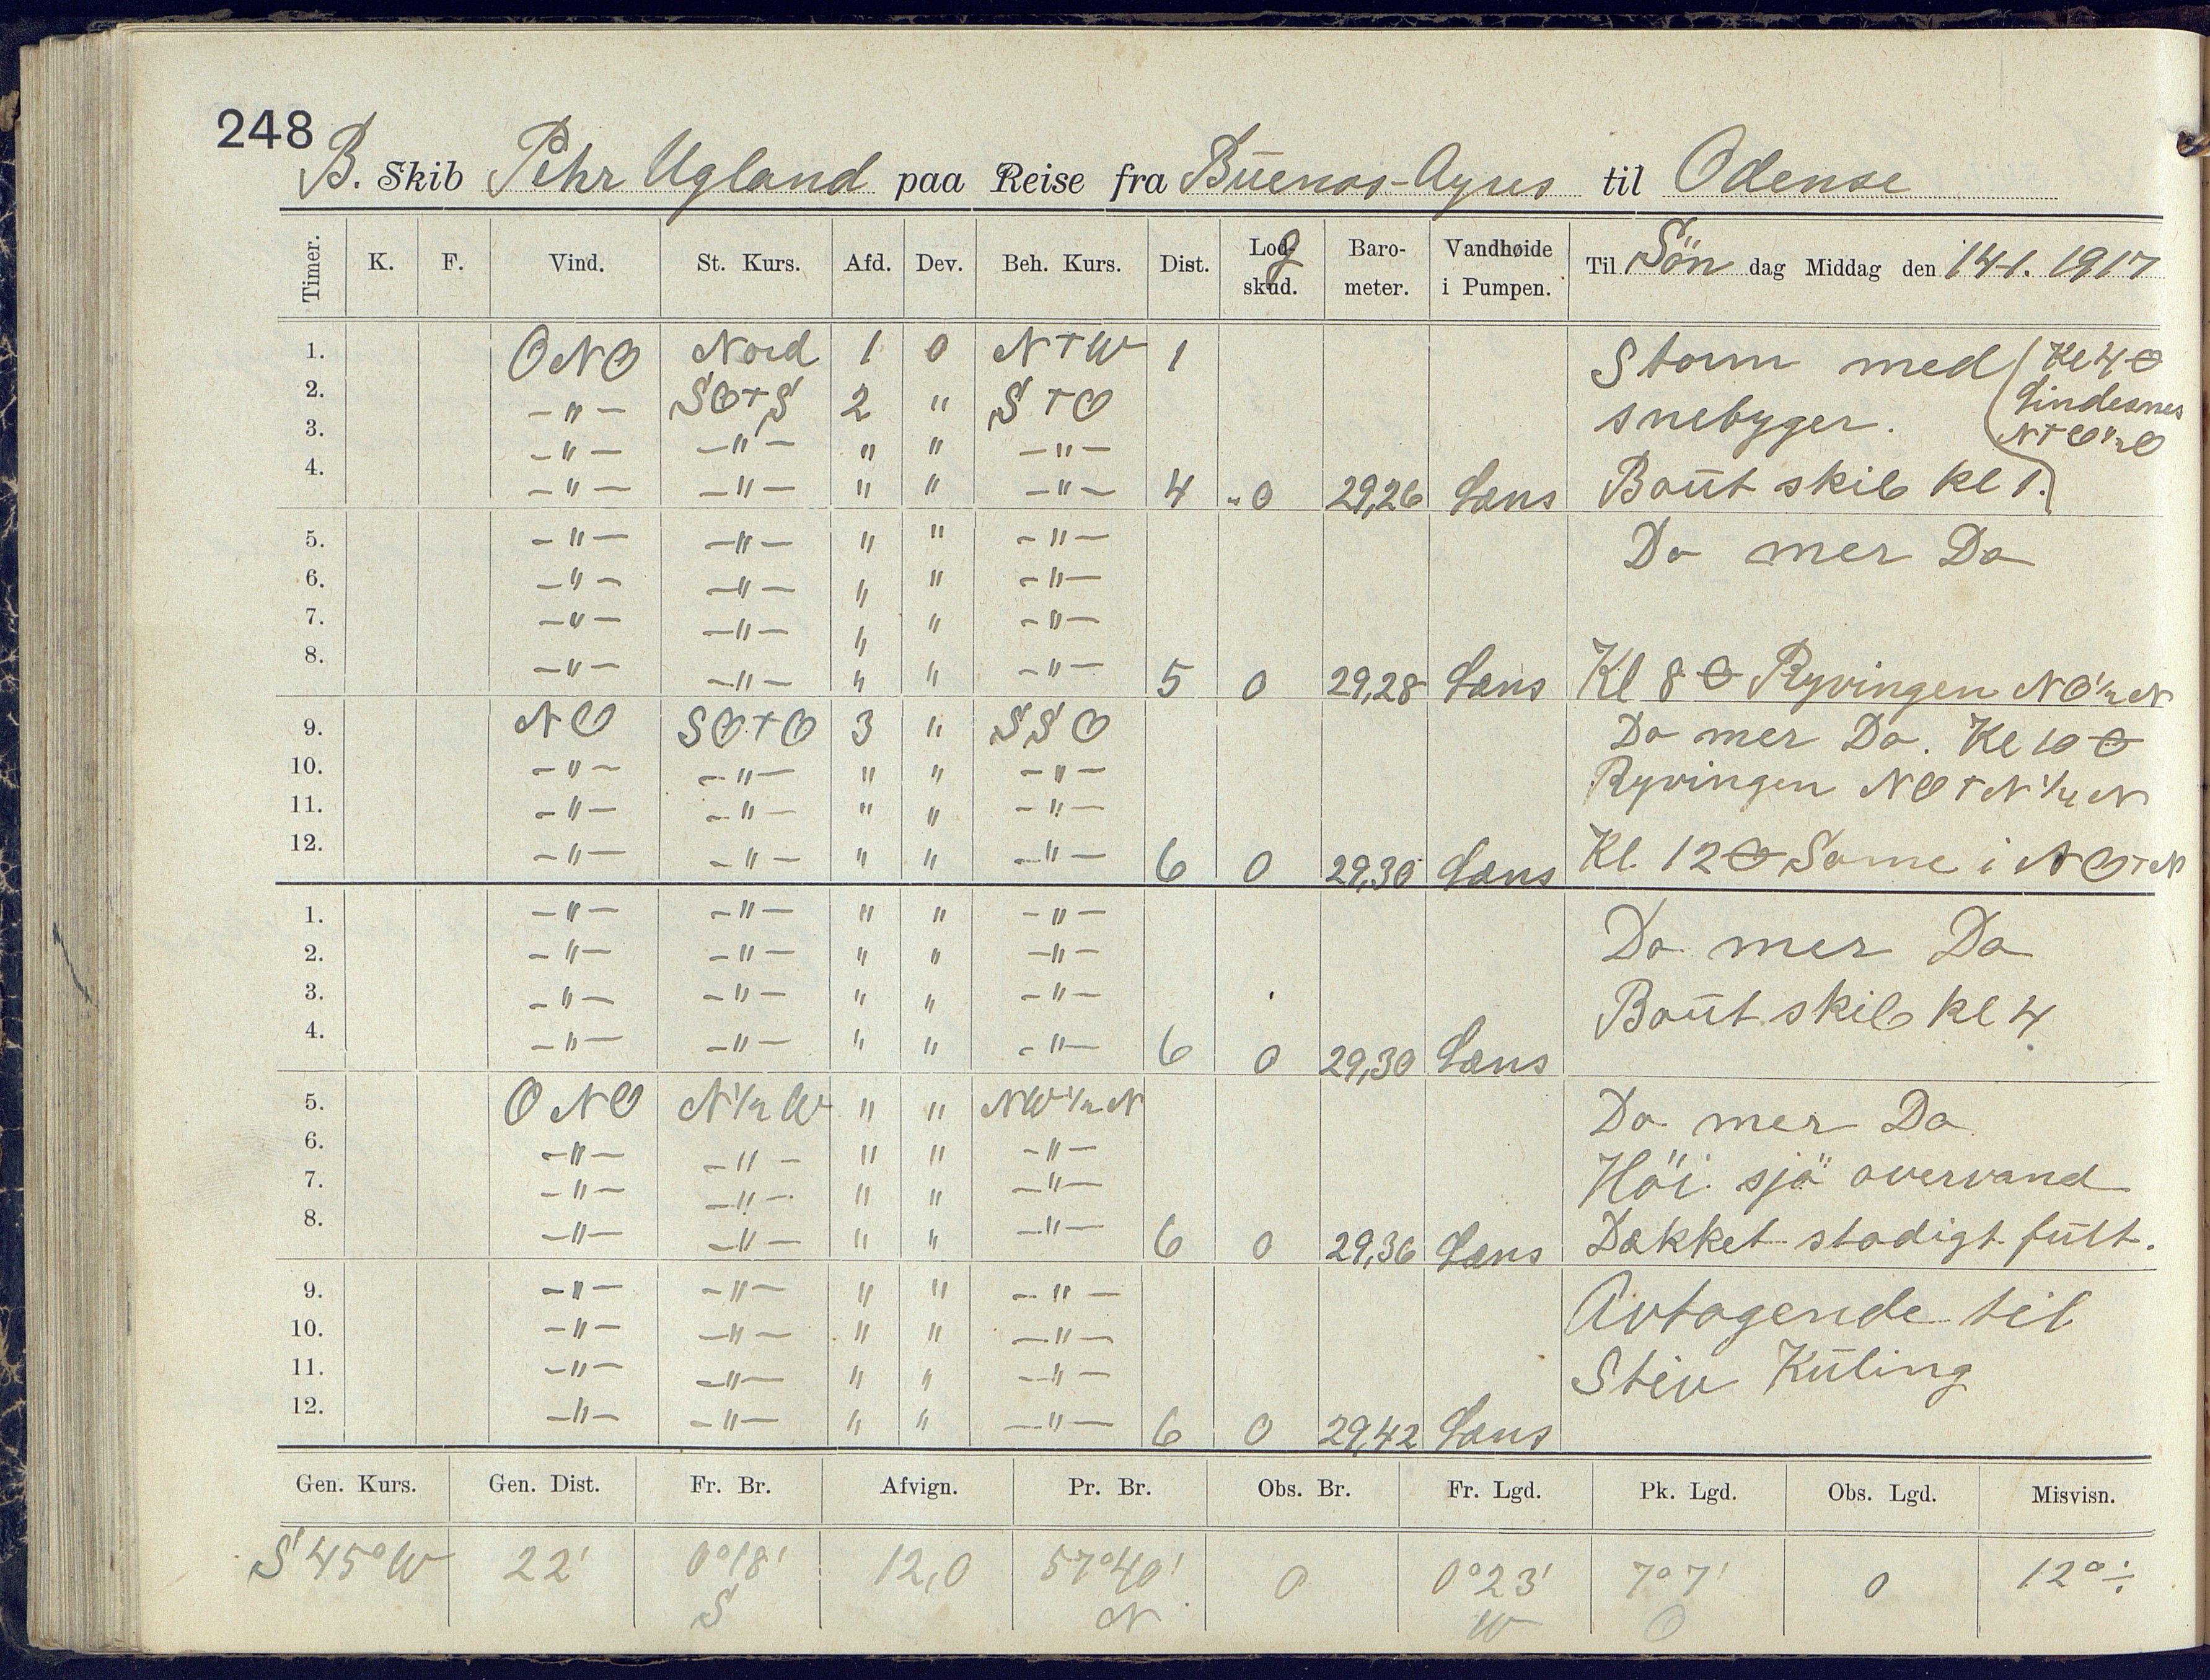 248
B. Skib Pehr Ugland paa Reise fra Buenos-Ayres til Odense
Timer. K. F. Vind. St. Kurs. Afd. Dev. Beh. Kurs. Dist. Log- skud. Baro- meter. Vandhøide i Pumpen. Til Sön dag Middag den 14-1. 1917
1. ONO Nord 1 0 N t W 1 Storm med (Kl 4 O
2. -"- SOtS 2 " S t O snebyger. Lindesnes
3. -"- -"- " " -"- NtO½O
4. -"- -"- " " -"- 4 " 0 29,26 Læns Bout skib kl 1.
5. -"- -"- " " -"- Do mer Do
6. -"- -"- " " -"-
7. -"- -"- " " -"-
8. -"- -"- " " -"- 5 0 29,28 Læns Kl 8 O Ryvingen NO½N
9. NO SOtO 3 " SSO Do mer Do. Kl 10 O
10. -"- -"- " " -"- Ryvingen NOtN¼N
11. -"- -"- " " -"-
12. -"- -"- " " -"- 6 0 29,30 Læns Kl. 12 O Same i NOtN
1. -"- -"- " " -"- Do mer Do
2. -"- -"- " " -"-
3. -"- -"- " " -"- Bout skib kl 4
4. -"- -"- " " -"- 6 0 29,30 Læns
5. ONO N½W " " NW½N Do mer Do
6. -"- -"- " " -"-
7. -"- -"- " " -"- Höi sjö overvand
8. -"- -"- " " -"- 6 0 29,36 Læns Dækket stadigt fult.
9. -"- -"- " " -"- Avtagende til
10. -"- -"- " " -"-
11. -"- -"- " " -"- Stiv Kuling
12. -"- -"- " " -"- 6 0 29,42 Læns
Gen. Kurs. Gen. Dist. Fr. Br. Afvign. Pr. Br. Obs. Br. Fr. Lgd. Pk. Lgd. Obs. Lgd. Misvisn.
S 45° W 22' 0°18' 12,0 57°40' 0 0°23' 7°7' 0 12°÷
S N W O